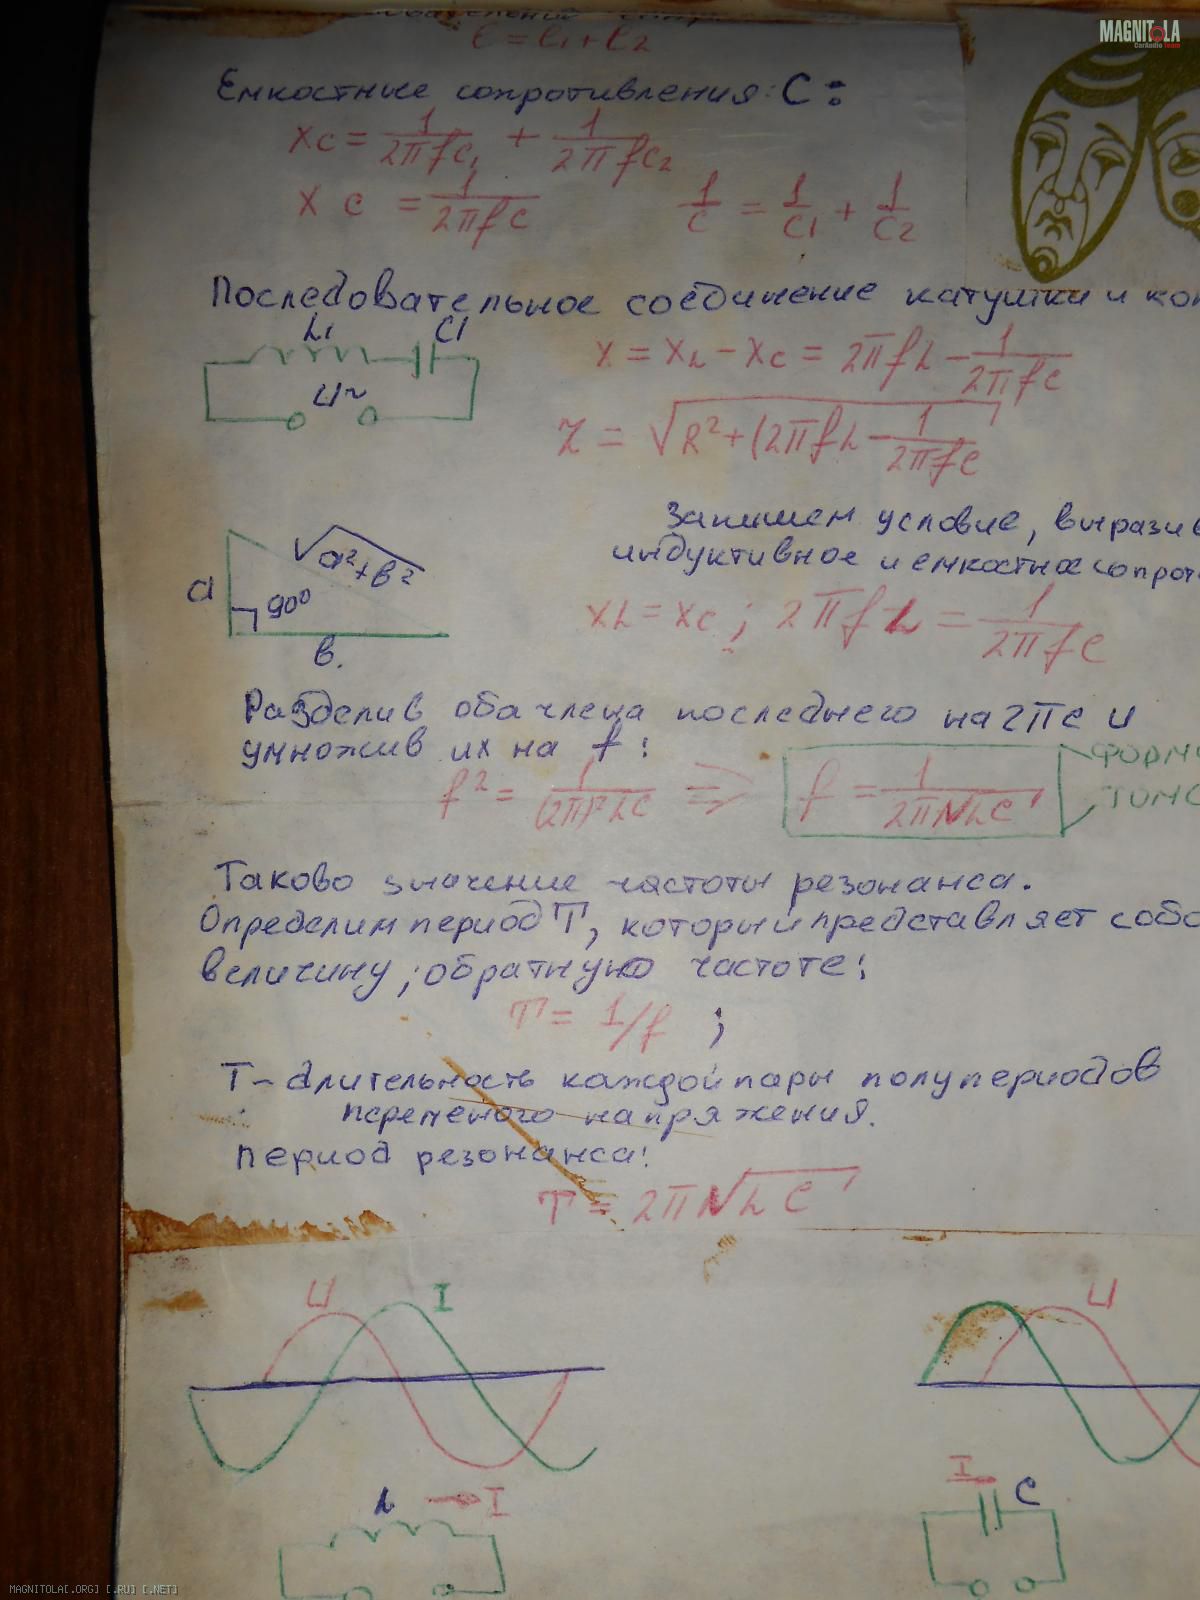 MAGNITOLA
CarAudio Team
ℓ = ℓ1 + ℓ2
Емкостные сопротивления: С:
Xc = 1/2πfC1 + 1/2πfC2
Xc = 1/2πfC    1/C = 1/C1 + 1/C2
Последовательное соединение катушки и
L1 C1
U~
X = XL - Xc = 2πfL - 1/2πfC
Z = √R² + (2πfL - 1/2πfC
Запишем условие,
индуктивное и емкостное
a
√a²+в²
90°
в.
XL = Xc ; 2πfL = 1/2πfC
Разделив оба члена последнего на 2πс и
умножив их на f:
f² = 1/(2π)²LC ⇒ f = 1/2π√LC
Таково значение частоты резонанса.
Определим период T, который представляет
величину, обратную частоте:
T = 1/f ;
T - длительность каждой пары полупериодов
переменого напряжения.
период резонанса:
T = 2π√LC
U I
U
L → I
I
C
MAGNITOLA[.ORG] [.RU] [.NET]